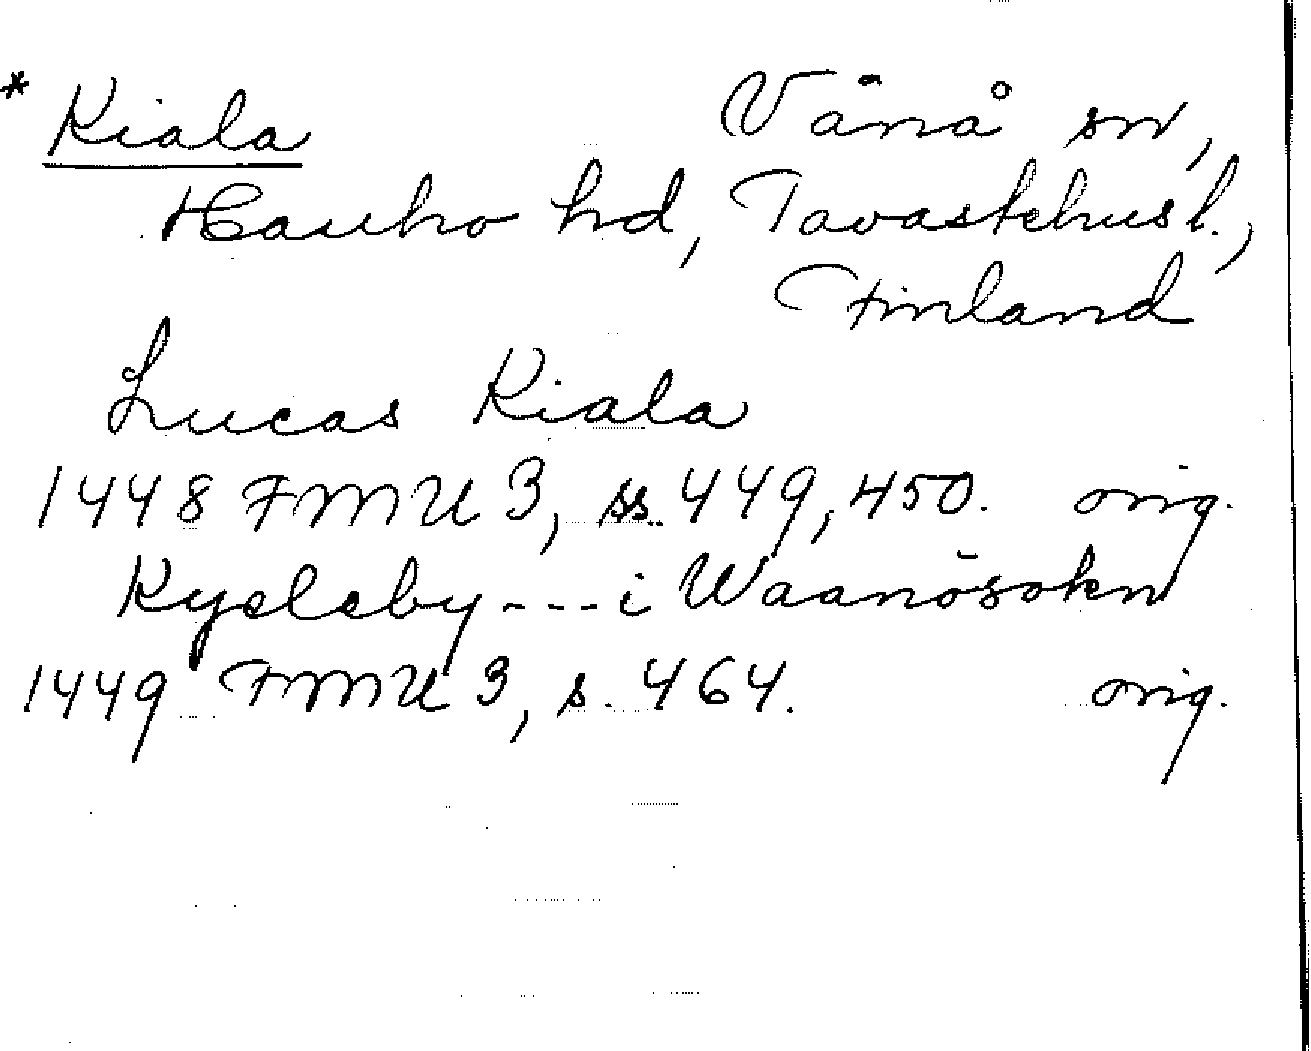 * Kiala Vånå sn,
Hauho hd, Tavastehus l.,
Finland
Lucas Kiala
1448 FMU 3, ss. 449, 450. orig.
Kyeleby --- i Waanösokn
1449 FMU 3, s. 464. orig.